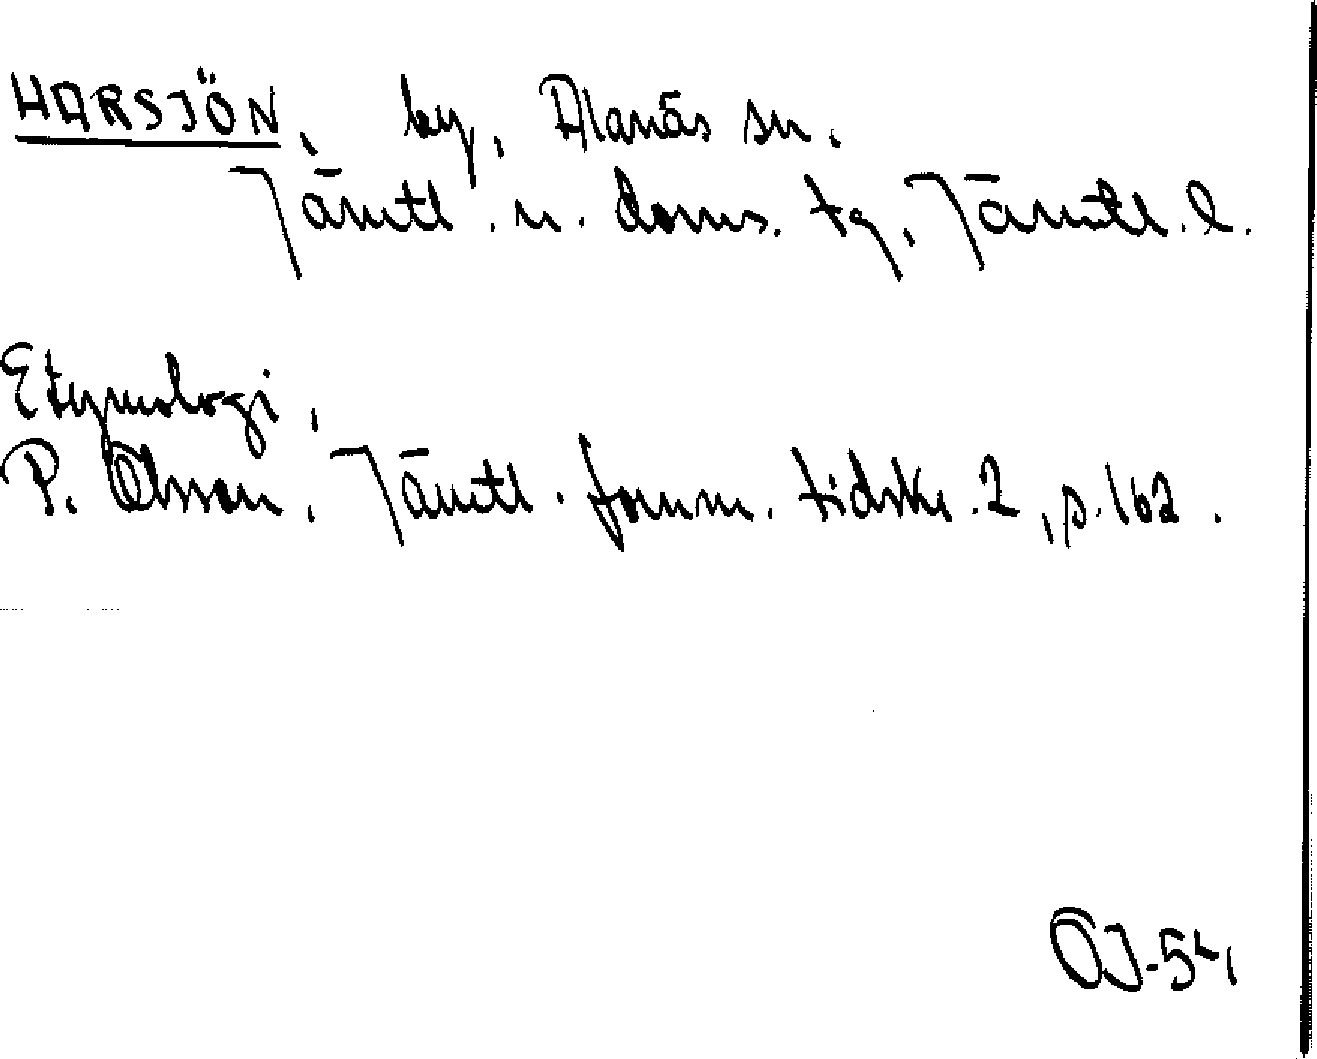 HARSJÖN, by, Alanäs sn.
Jämtl. n. doms. tg, Jämtl. l.
Etymologi,
P. Olsson, Jämtl. fornm. tidskr. 2, p. 162.
ÖJ-54